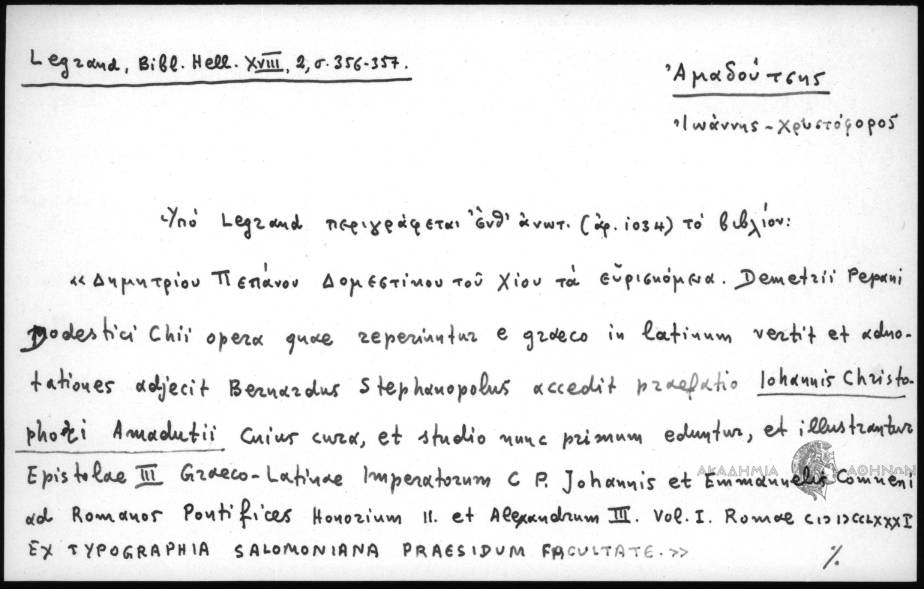 Legrand, Bibl. Hell. XVIII, 2, σ. 356-357.
Ἀμαδούτσης
Ἰωάννης - Χρυστόφορος
Ὑπό Legrand περιγράφεται ἔνθ' ἀνωτ. (ἀρ. 1034) τό βιβλίον:
«Δημητρίου Πεπάνου Δομεστίκου τοῦ Χίου τά εὑρισκόμενα. Demetrii Pepani
Domestici Chii opera quae reperiuntur e graeco in latinum vertit et adno-
tationes adjecit Bernardus Stephanopolus accedit praefatio Iohannis Christo-
phori Amadutii Cuius cura, et studio nunc primum eduntur, et illustrantur
Epistolae III Graeco-Latinae Imperatorum C P. Johannis et Emmanuelis Comneni
ad Romanos Pontifices Honorium II. et Alexandrum III. Vol. I. Romae CIƆIƆCCLXXXI
EX TYPOGRAPHIA SALOMONIANA PRAESIDUM FACULTATE.»
%
ΑΚΑΔΗΜΙΑ ΑΘΗΝΩΝ